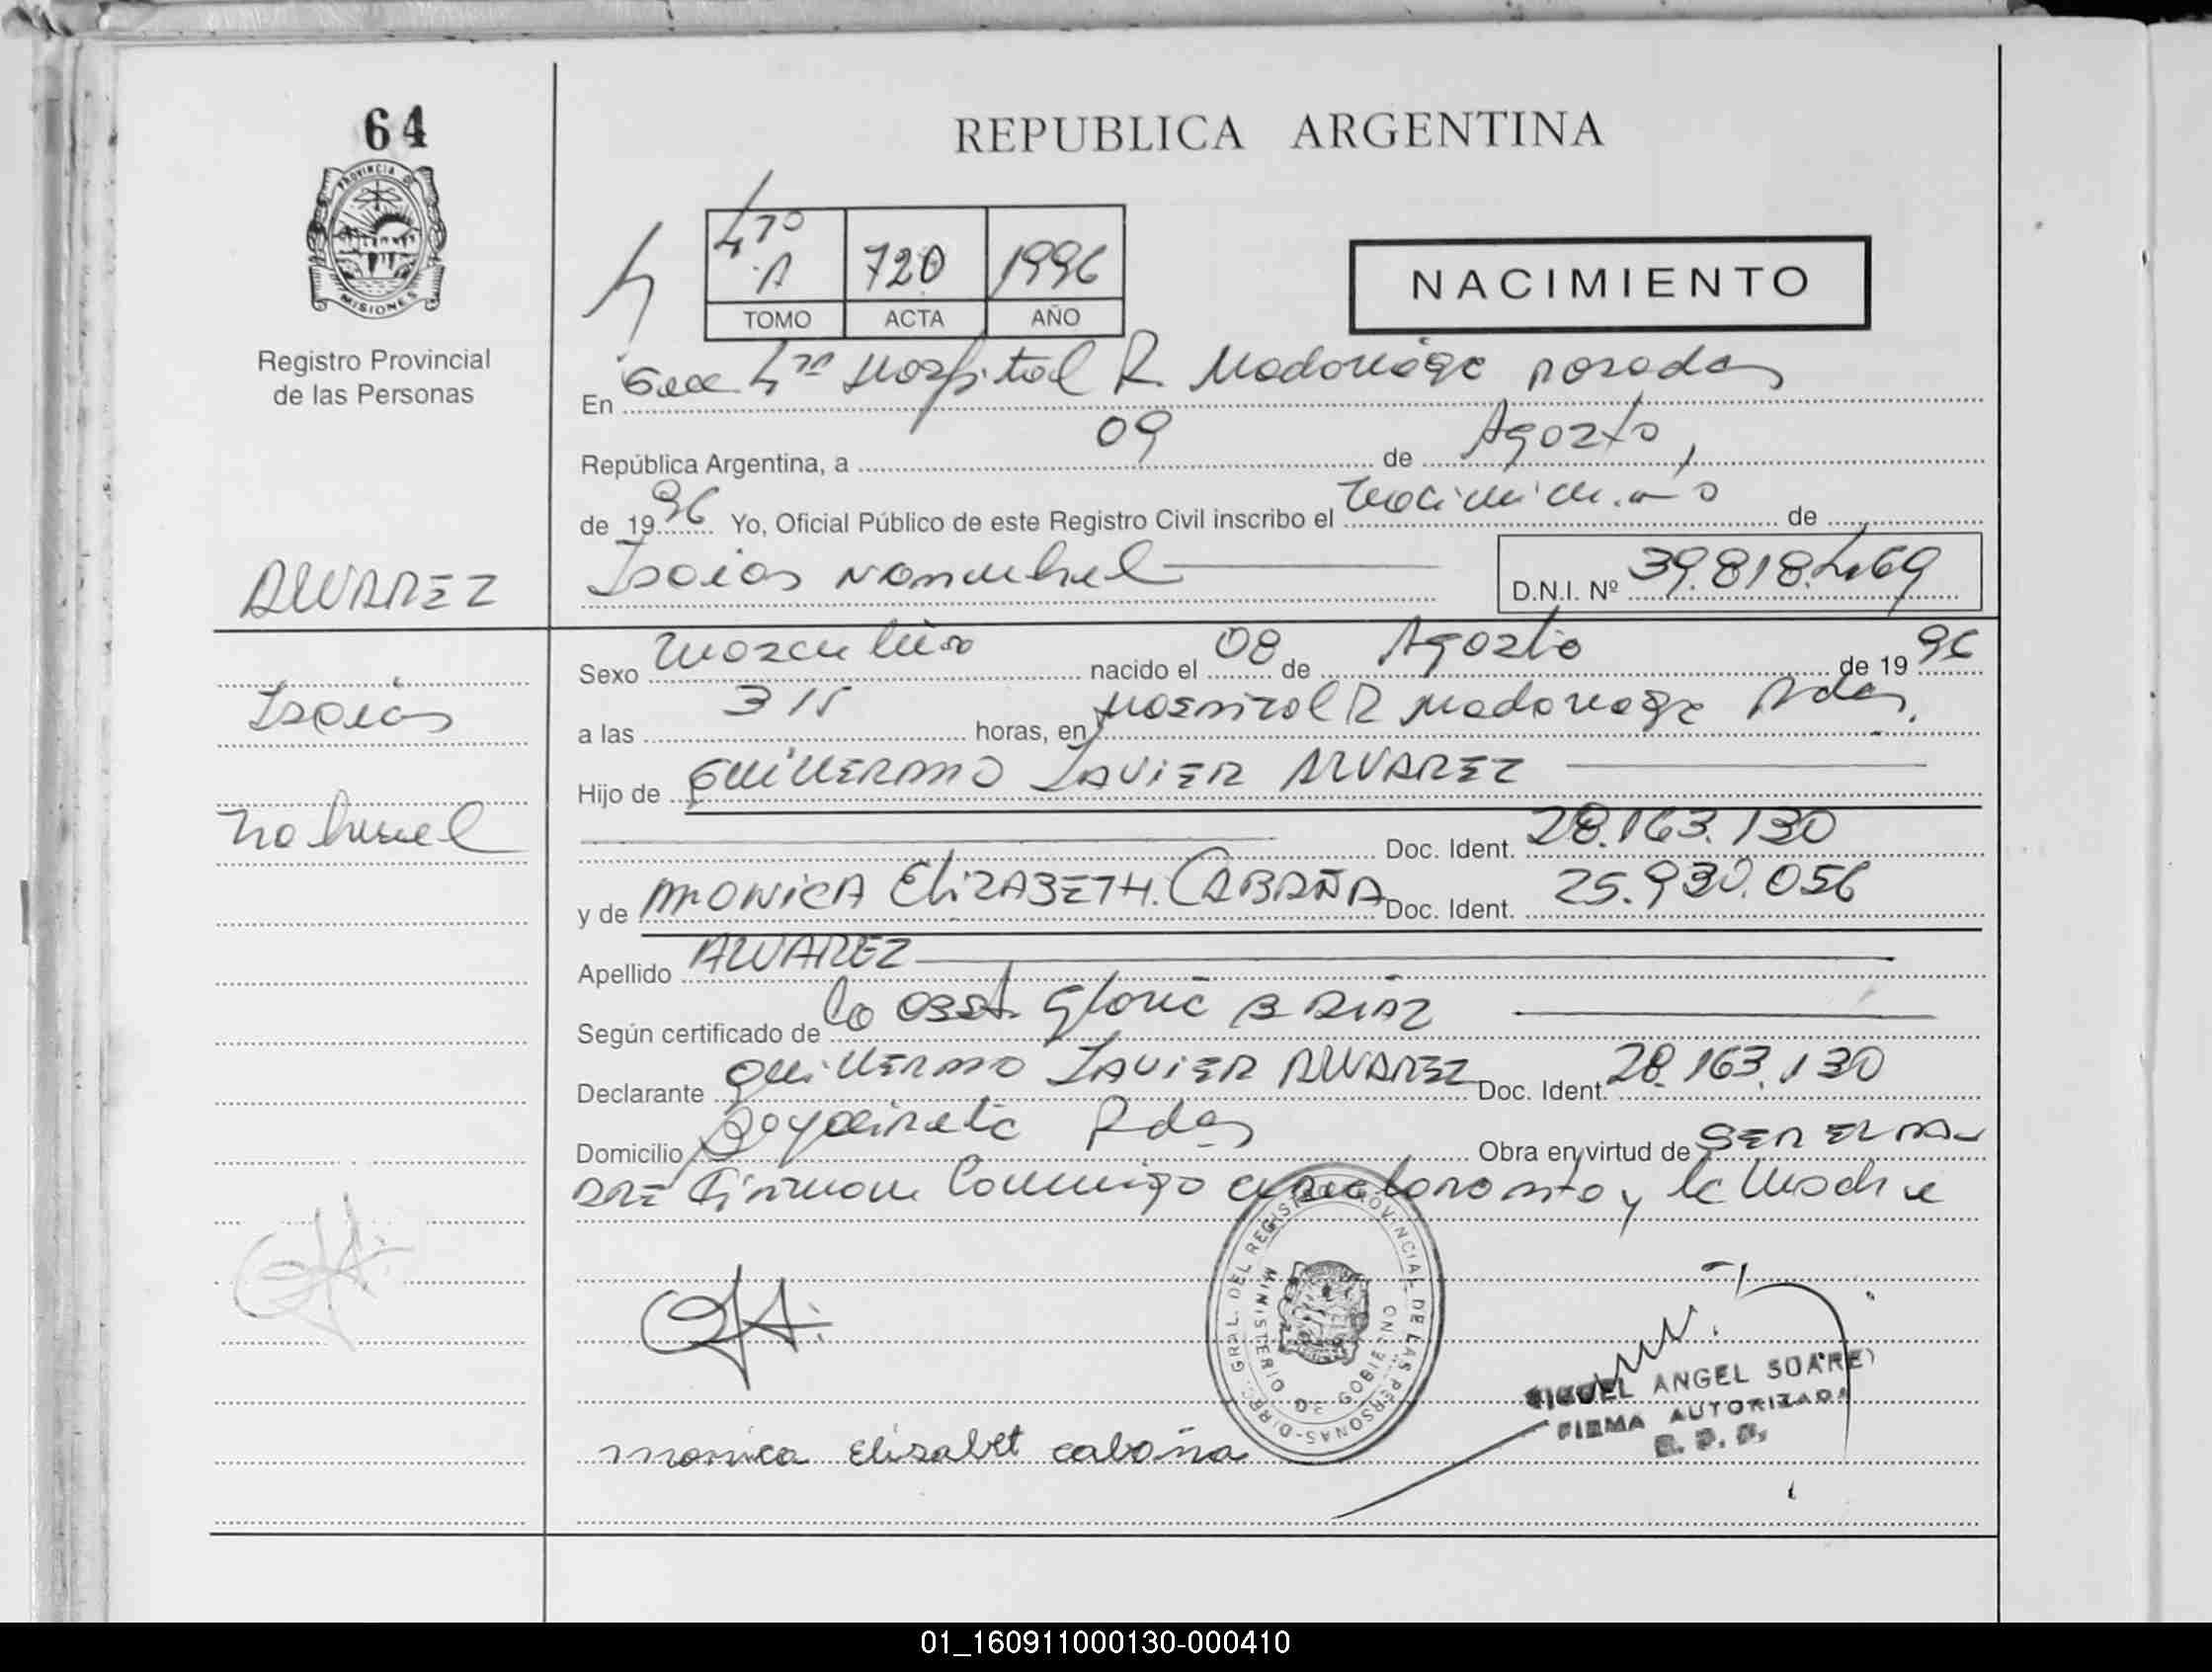 64
REPUBLICA ARGENTINA
PROVINCIA DE
MISIONES
Registro Provincial
de las Personas
4
4ta A 720 1996
TOMO ACTA AÑO
NACIMIENTO
En Secc 4ta Hospital R. Madariaga Posadas
República Argentina, a 09 de Agosto,
de 1996 Yo, Oficial Público de este Registro Civil inscribo el nacimiento de
ALVAREZ
Isaias D.N.I. Nº 39.818.469
Sexo masculino nacido el 08 de Agosto de 1996
Isaias
a las 315 horas, en Hospital R Madariaga Pdas.
Hijo de GUILLERMO JAVIER ALVAREZ
Nahuel
Doc. Ident. 28.163.130
y de MONICA ELIZABETH CABAÑA Doc. Ident. 25.930.056
Apellido ALVAREZ
Según certificado de la Obst. Gloria B DIAZ
Declarante GUILLERMO JAVIER ALVAREZ Doc. Ident. 28.163.130
Domicilio Pdas Obra en virtud de SER EL PA-
DRE Firman Conmigo el declarante y la Madre
DIREC. GRAL. DEL REGISTRO PROVINCIAL DE LAS PERSONAS
MINISTERIO DE GOBIERNO
MIGUEL ANGEL SUAREZ
FIRMA AUTORIZADA
monica Elisabet cabaña
01_160911000130-000410